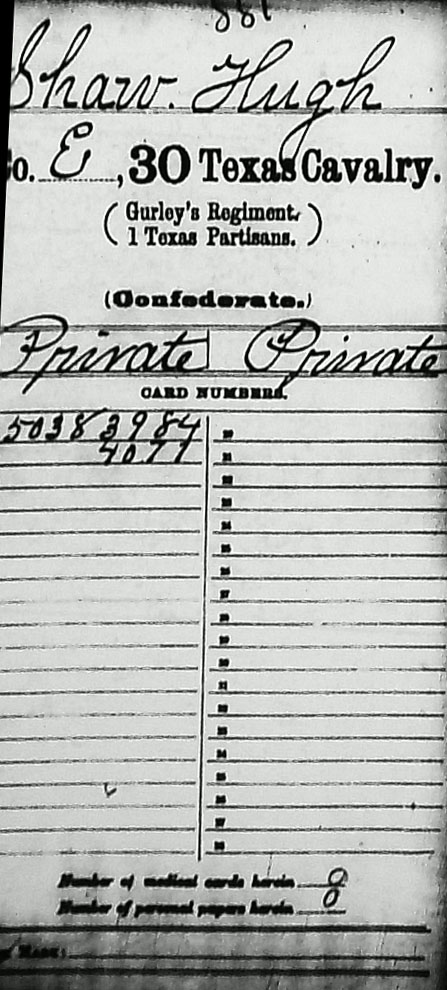 881
Shaw. Hugh
Co. E, 30 Texas Cavalry.
(Gurley's Regiment,
1 Texas Partisans.)
(Confederate.)
Private Private
CARD NUMBERS.
50383984
4077
Number of medical cards herein 0
Number of personal papers herein 0